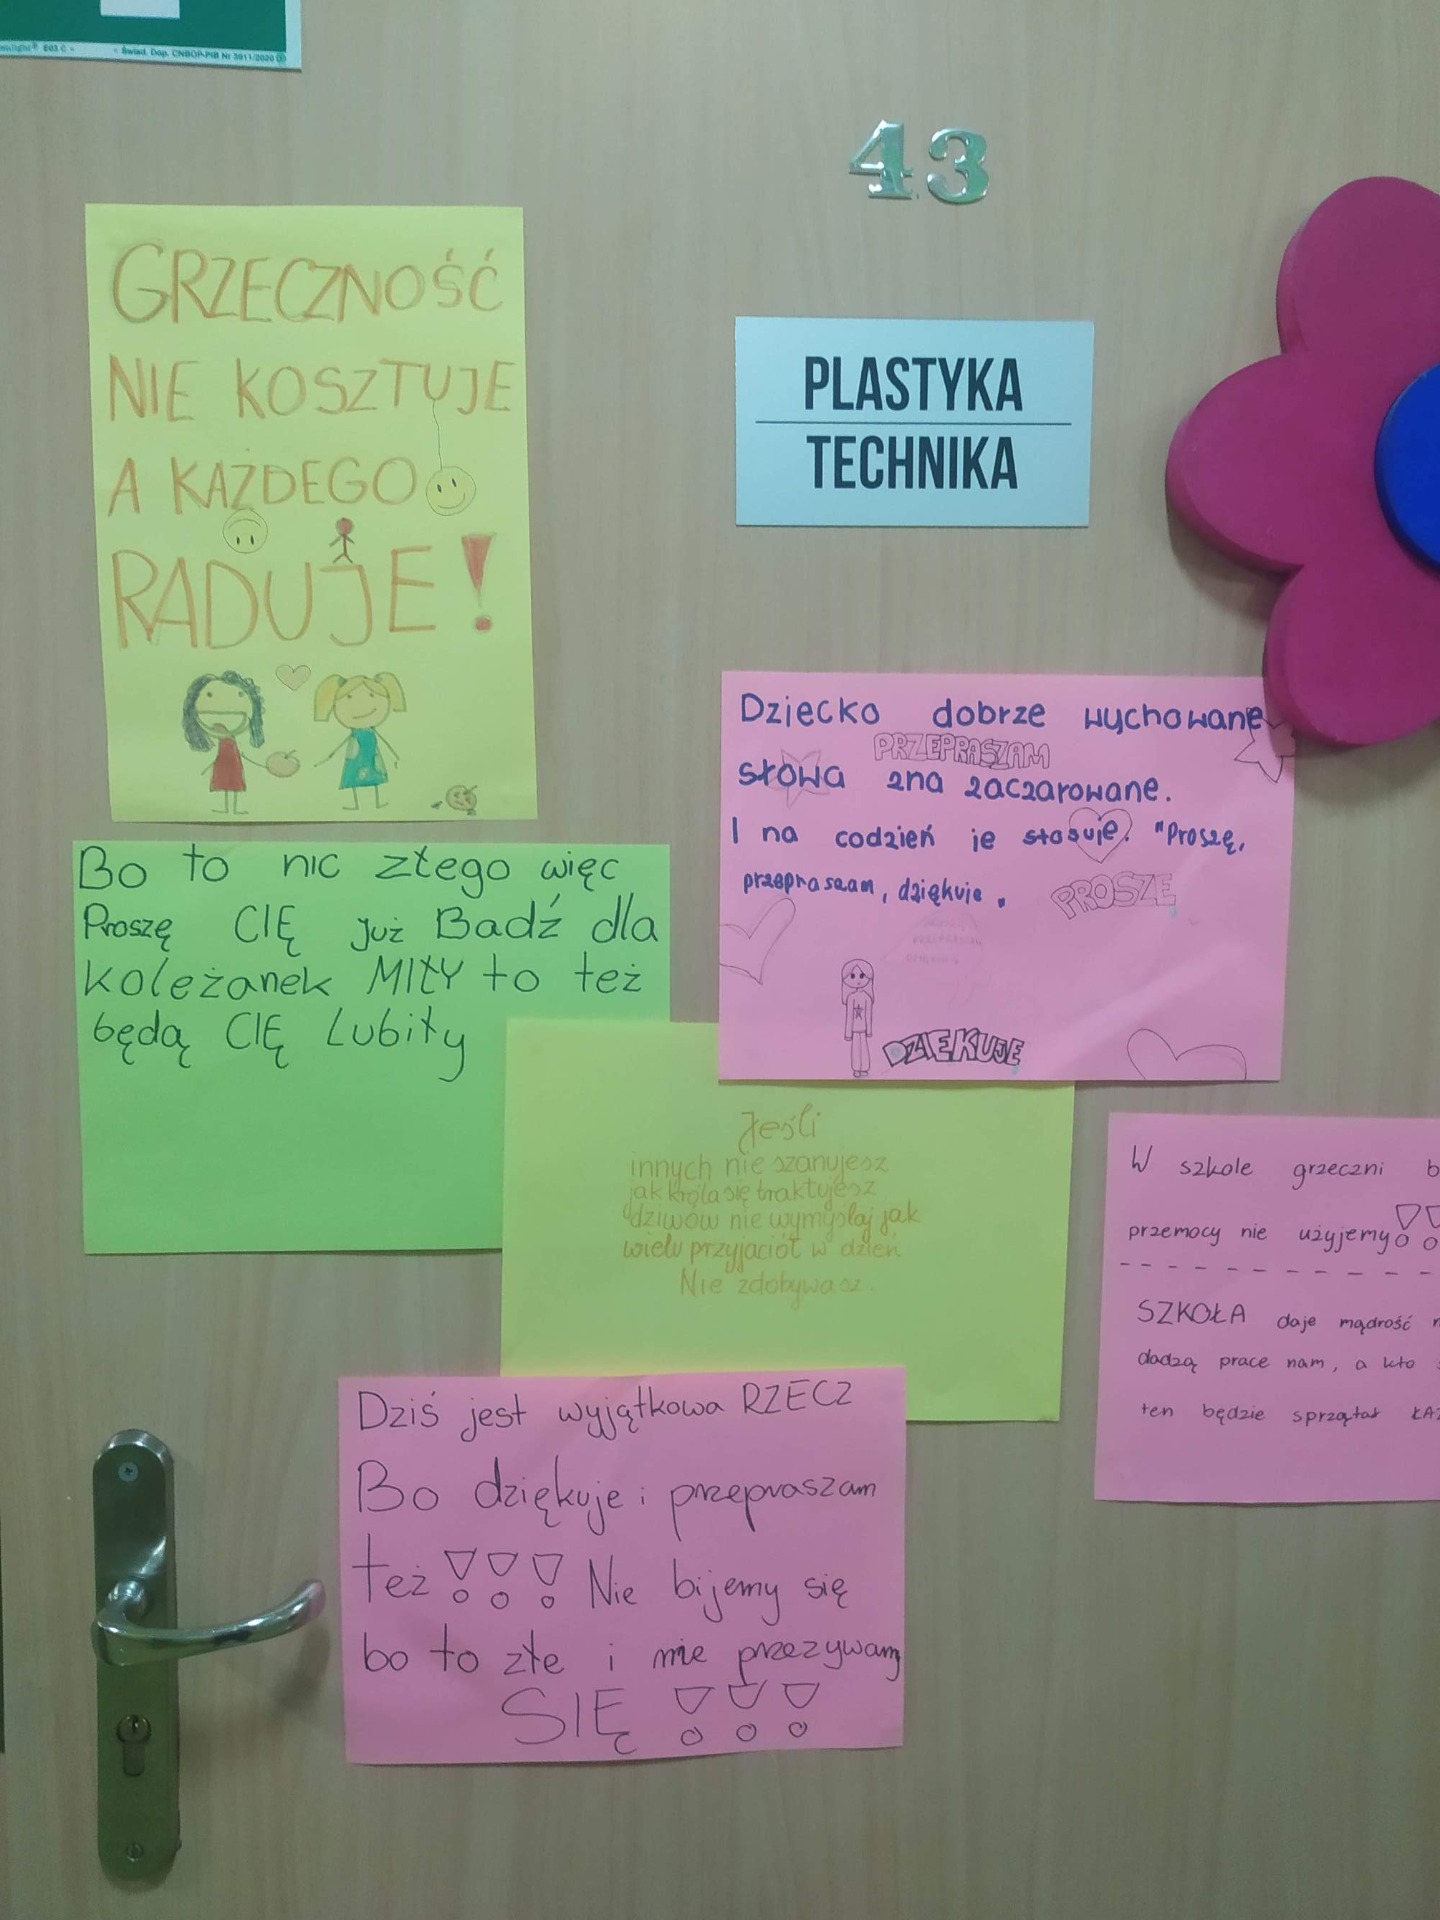 E03 C
Świad. Dop. CNBOP-PIB Nr 3911/2020
43
GRZECZNOŚĆ
NIE KOSZTUJE
A KAŻDEGO
RADUJE!
PLASTYKA
TECHNIKA
Dziecko dobrze wychowane
PRZEPRASZAM
słowa zna zaczarowane.
I na codzień je stosuje. "Proszę,
przepraszam, dziękuje.
PROSZE
DZIEKUJE
Bo to nic złego więc
Proszę CIĘ już Badź dla
koleżanek MIŁY to też
będą CIĘ Lubiły
Jeśli
innych nie szanujesz
jak króla się traktujesz
dziwów nie wymyślaj jak
wielu przyjaciół w dzień
Nie zdobywasz.
W szkole grzeczni b
przemocy nie użyjemy!!
SZKOŁA daje mądrość
dadzą prace nam, a kto
ten będzie sprzątał ŁAZ
Dziś jest wyjątkowa RZECZ
Bo dziękuje i przepraszam
też !!! Nie bijemy się
bo to złe i nie przezywamy
SIĘ !!!